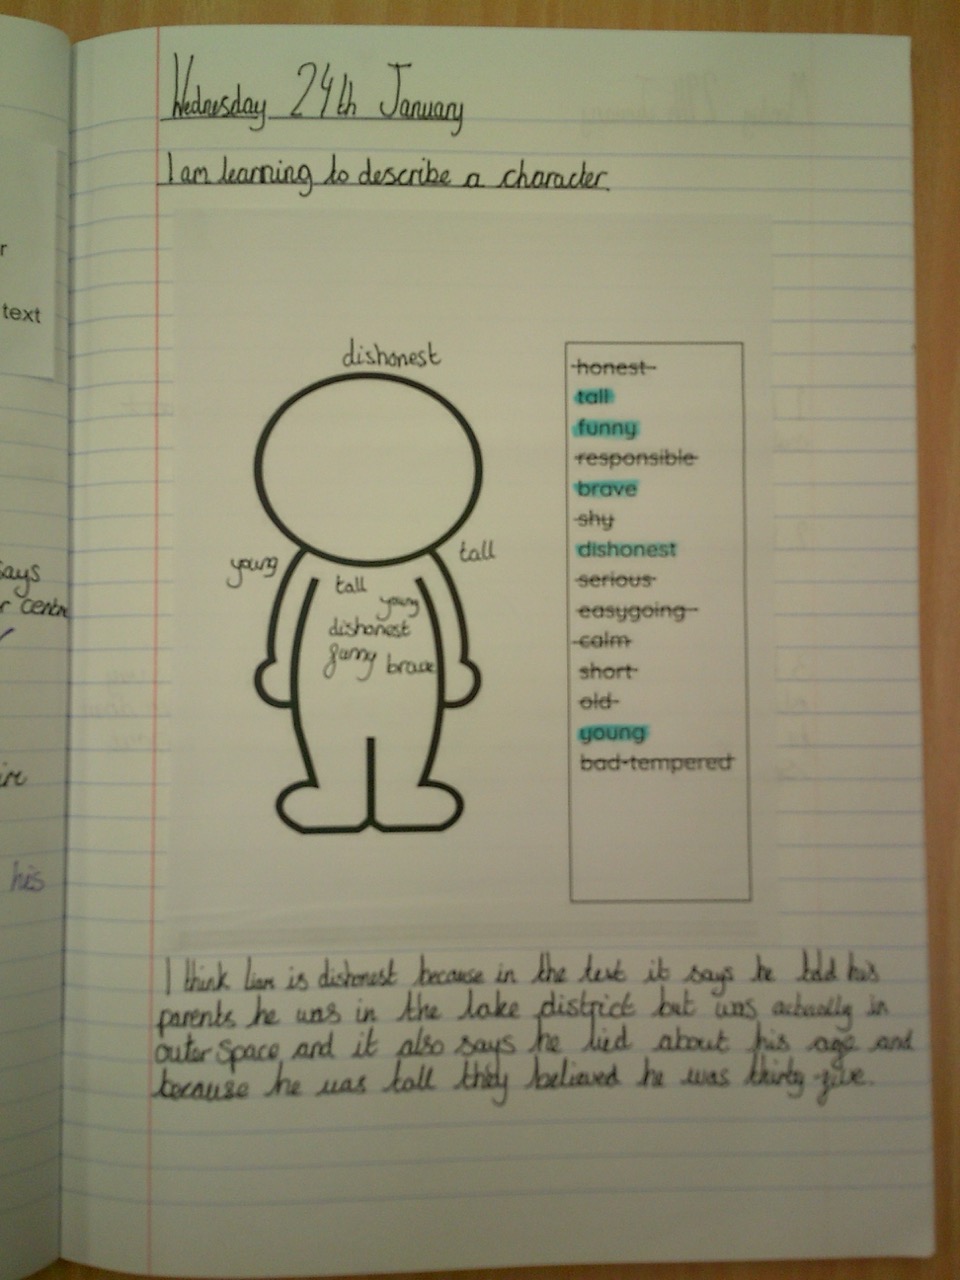 Wednesday 24th January
I am learning to describe a character.
r
text
says
r centre
ire
his
dishonest
young
tall
tall
young
dishonest
funny brave
honest
tall
funny
responsible
brave
shy
dishonest
serious
easygoing
calm
short
old
young
bad-tempered
I think Liam is dishonest because in the text it says he told his
parents he was in the lake district but was actually in
outer space and it also says he lied about his age and
because he was tall they believed he was thirty-five.